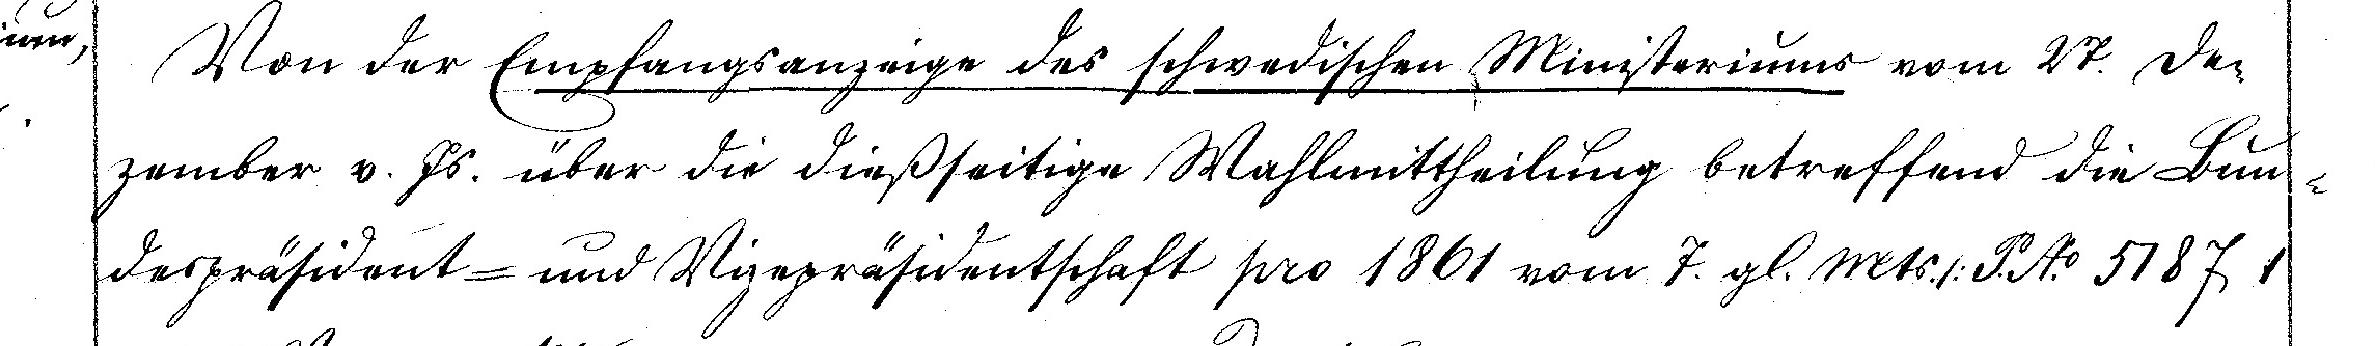 Von der Empfangsanzeige des schwedischen Ministeriums vom 27. De-
zember v. Js. über die dießseitige Wahlmittheilung betreffend die Bun-
despräsident= und Vizepräsidentschaft pro 1861 vom 7. gl. Mts. /: P. No 5187